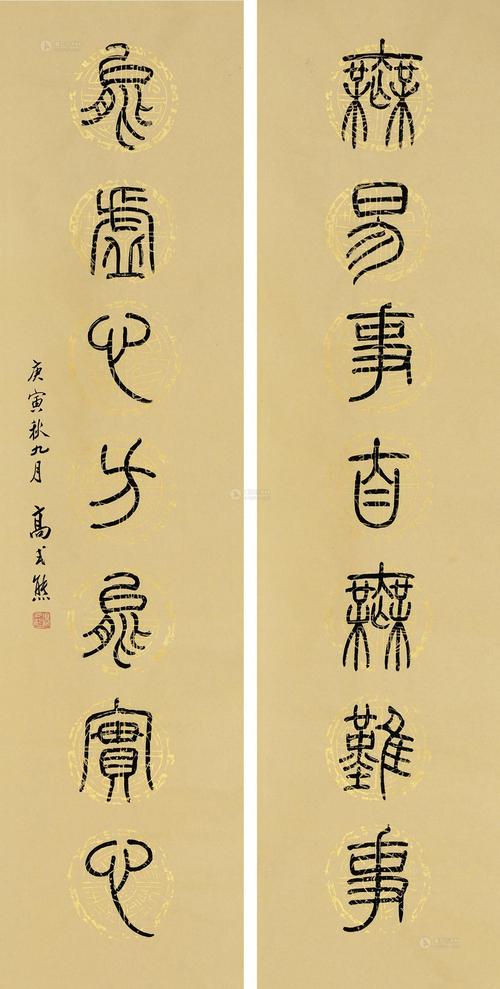 無易事自無難事
能虛心方能實心
庚寅秋九月 高式熊